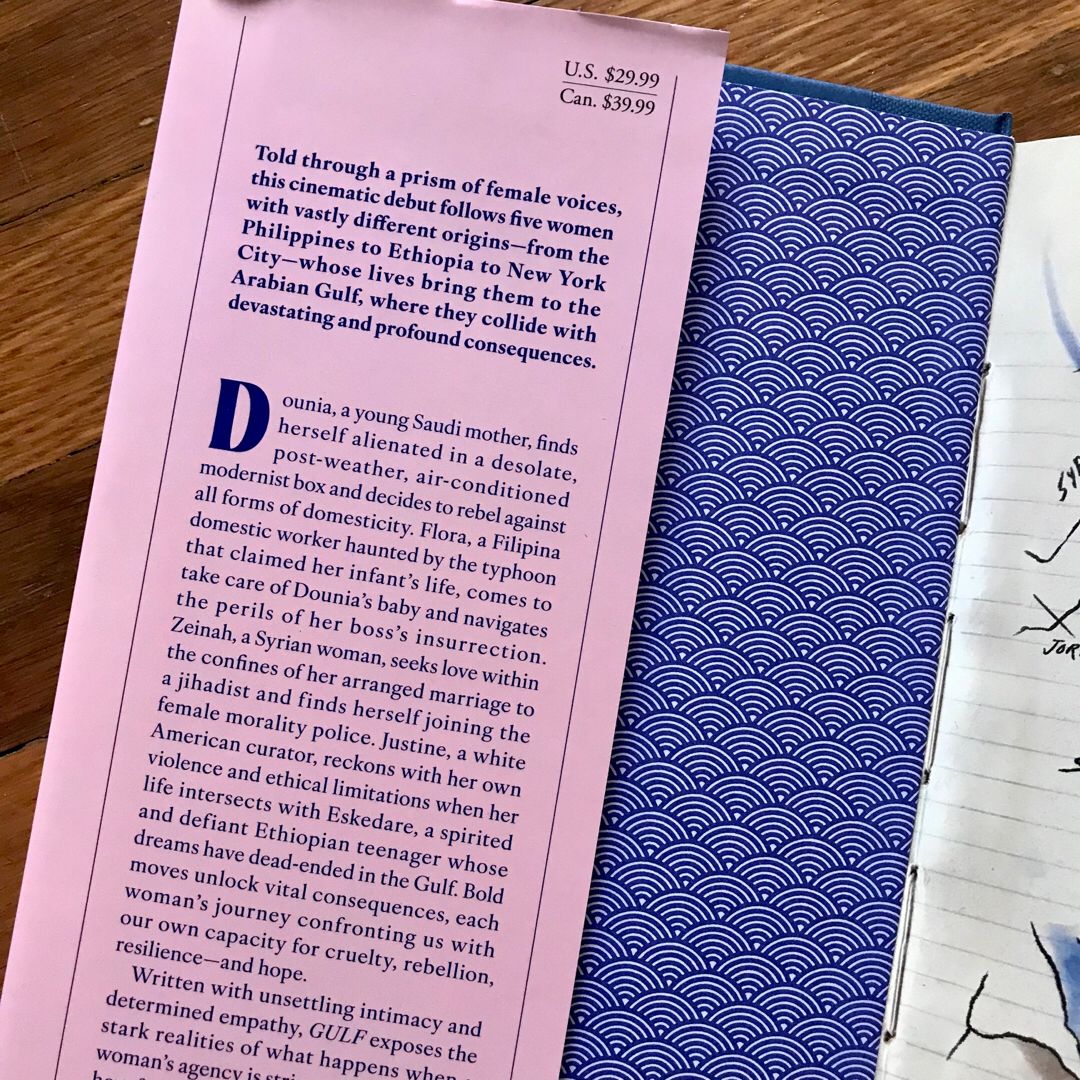 U.S. $29.99
Can. $39.99
Told through a prism of female voices,
this cinematic debut follows five women
with vastly different origins—from the
Philippines to Ethiopia to New York
City—whose lives bring them to the
Arabian Gulf, where they collide with
devastating and profound consequences.
Dounia, a young Saudi mother, finds
herself alienated in a desolate,
post-weather, air-conditioned
modernist box and decides to rebel against
all forms of domesticity. Flora, a Filipina
domestic worker haunted by the typhoon
that claimed her infant's life, comes to
take care of Dounia's baby and navigates
the perils of her boss's insurrection.
Zeinah, a Syrian woman, seeks love within
the confines of her arranged marriage to
a jihadist and finds herself joining the
female morality police. Justine, a white
American curator, reckons with her own
violence and ethical limitations when her
life intersects with Eskedare, a spirited
and defiant Ethiopian teenager whose
dreams have dead-ended in the Gulf. Bold
moves unlock vital consequences, each
woman's journey confronting us with
our own capacity for cruelty, rebellion,
resilience—and hope.
Written with unsettling intimacy and
determined empathy, GULF exposes the
stark realities of what happens when
woman's agency is